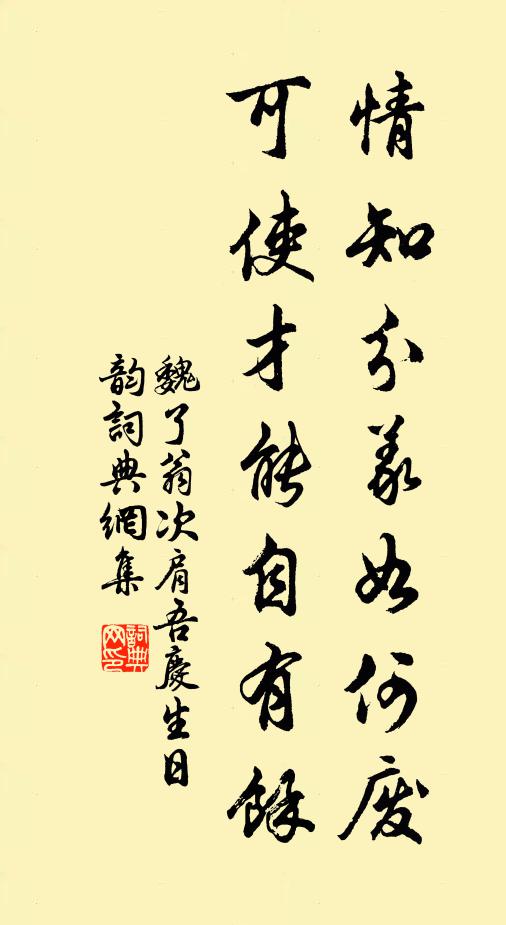 情知分義如何廢
可使才能自有餘
魏了翁次肩吾慶生日
韵詞典網集
詞典
网印